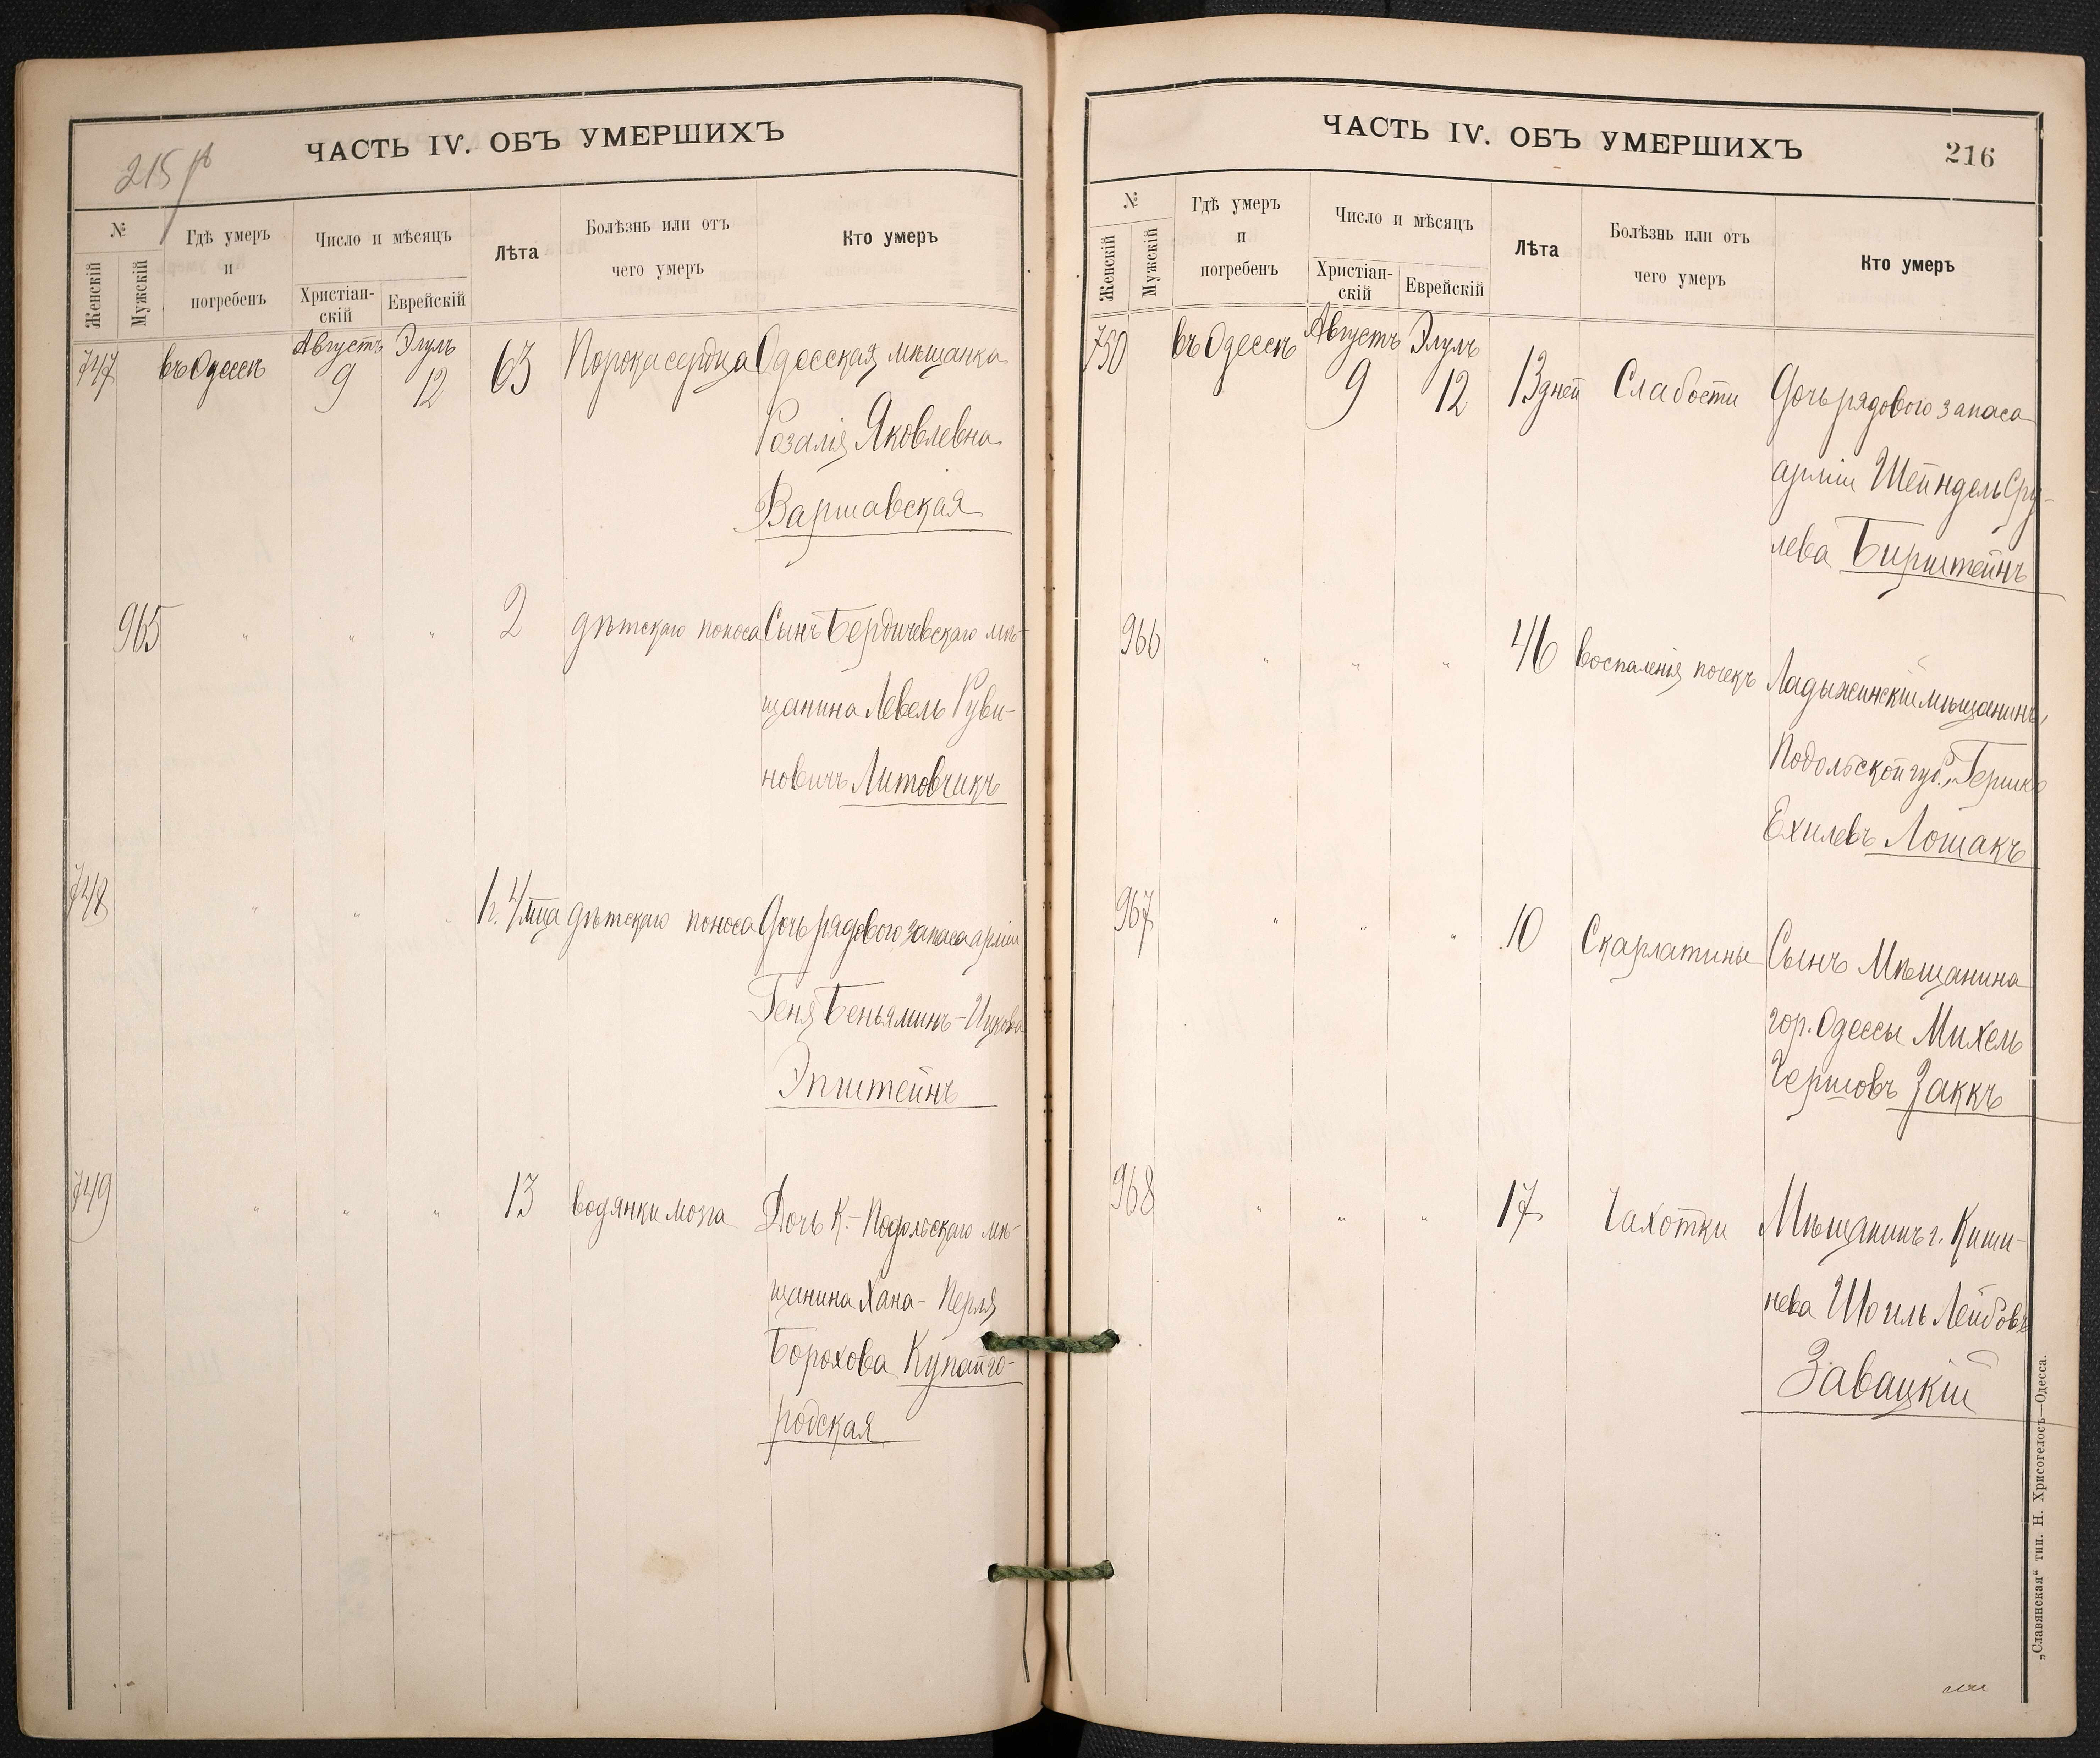 215 об
ЧАСТЬ IV. ОБЪ УМЕРШИХЪ
№
Женскій
Мужскій
Гдѣ умеръ
и
погребенъ
Число и мѣсяцъ
Христіан-
скій
Еврейскій
Лѣта
Болѣзнь или отъ
чего умеръ
Кто умеръ
747 въ Одессѣ Августъ 9 Элулъ 12 63 Порока сердца Одесская мѣщанка
Розалія Яковлевна
Варшавская
965 " " " 2 дѣтскаго поноса Сынъ Бердичевскаго мѣ-
щанина Левель Руви-
новичъ Литовчикъ
748 " " " 1 г. 4 мца дѣтскаго поноса Дочь рядового запаса арміи
Геня Беньяминъ-Ицкова
Эпштейнъ
749 " " " 13 водянки мозга Дочь К.-Подольскаго мѣ-
щанина Хана-Перля
Борохова Купайго-
родская
ЧАСТЬ IV. ОБЪ УМЕРШИХЪ
216
№
Женскій
Мужскій
Гдѣ умеръ
и
погребенъ
Число и мѣсяцъ
Христіан-
скій
Еврейскій
Лѣта
Болѣзнь или отъ
чего умеръ
Кто умеръ
750 въ Одессѣ Августъ 9 Элулъ 12 13 дней Слабости Дочь рядового запаса
арміи Шейндель Сру-
лева Бирштейнъ
966 " " " 46 воспаленія почекъ Ладыжинскій мѣщанинъ,
Подольской губ., Гершко
Ехилевъ Лошакъ
967 " " " 10 Скарлатины Сынъ Мѣщанина
гор. Одессы Михель
Гершовъ Заккъ
968 " " " 17 Чахотки Мѣщанинъ г. Киши-
нева Шоиль Лейбовъ
Завацкій
„Славянская“ тип. Н. Хрисогелосъ—Одесса.